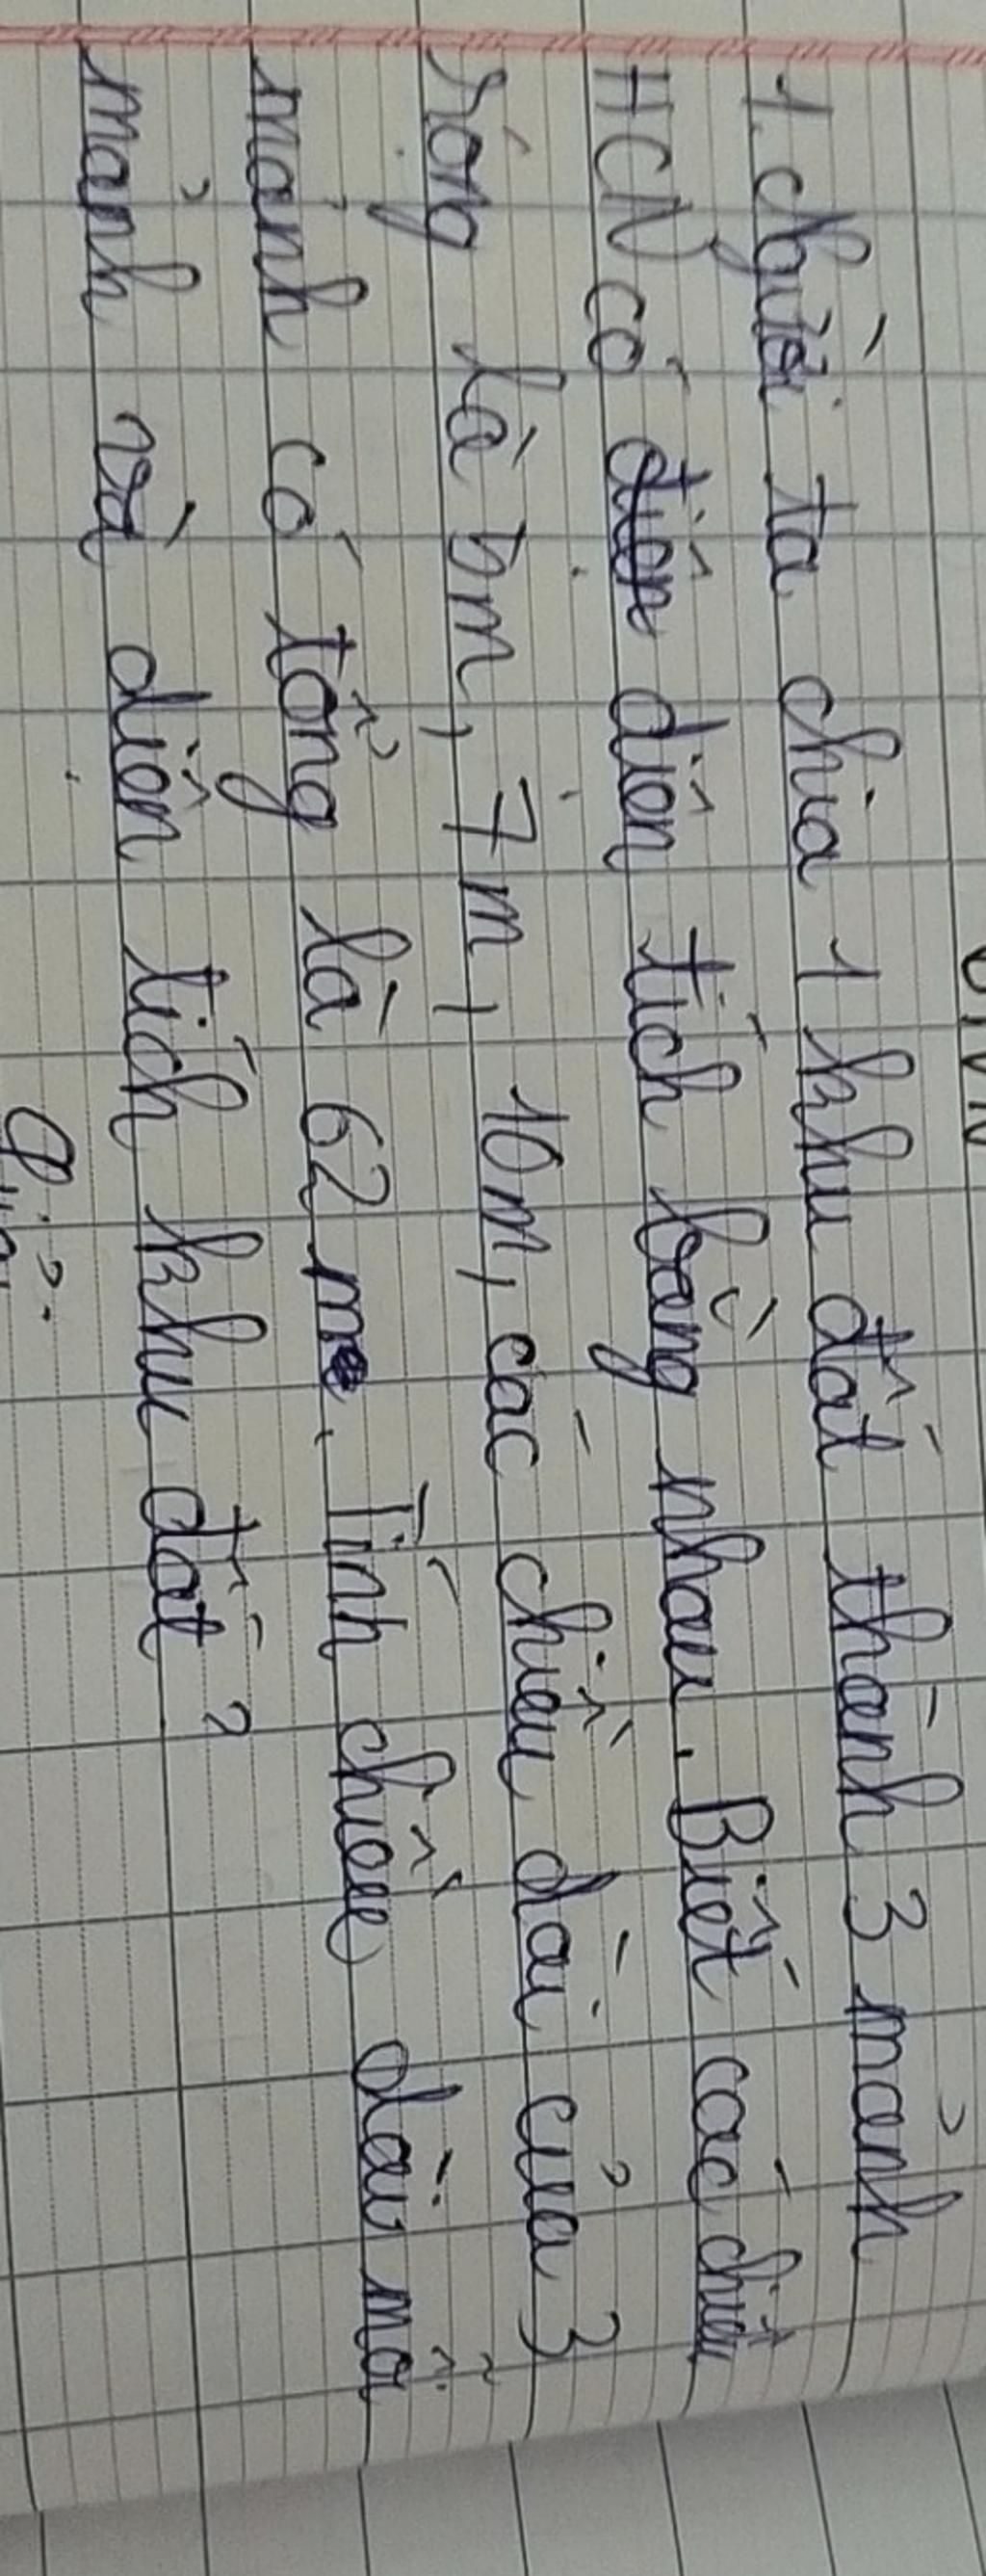 1. Người ta chia 1 khu đất thành 3 mảnh
HCN có diện tích bằng nhau. Biết các chiều
rộng là 5m, 7m, 10m, các chiều dài của 3
mảnh có tổng là 62 m. Tính chiều dài mỗi
mảnh và diện tích khu đất?
Giải